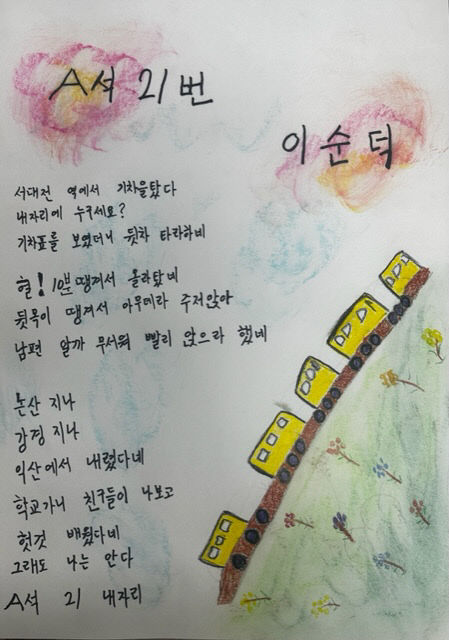 A석 21번
이순덕
서대전 역에서 기차을탔다
내자리에 누구세요?
기차표를 보였더니 뒷차 타라하네
헐! 10분 땡겨서 올라탔네
뒷목이 땡겨서 아무데라 주저앉아
남편 알까 무서워 빨리 앉으라 했네
논산 지나
강경 지나
익산에서 내렸다네
학교가니 친구들이 나보고
헛것 배웠다네
그래도 나는 안다
A석 21 내자리